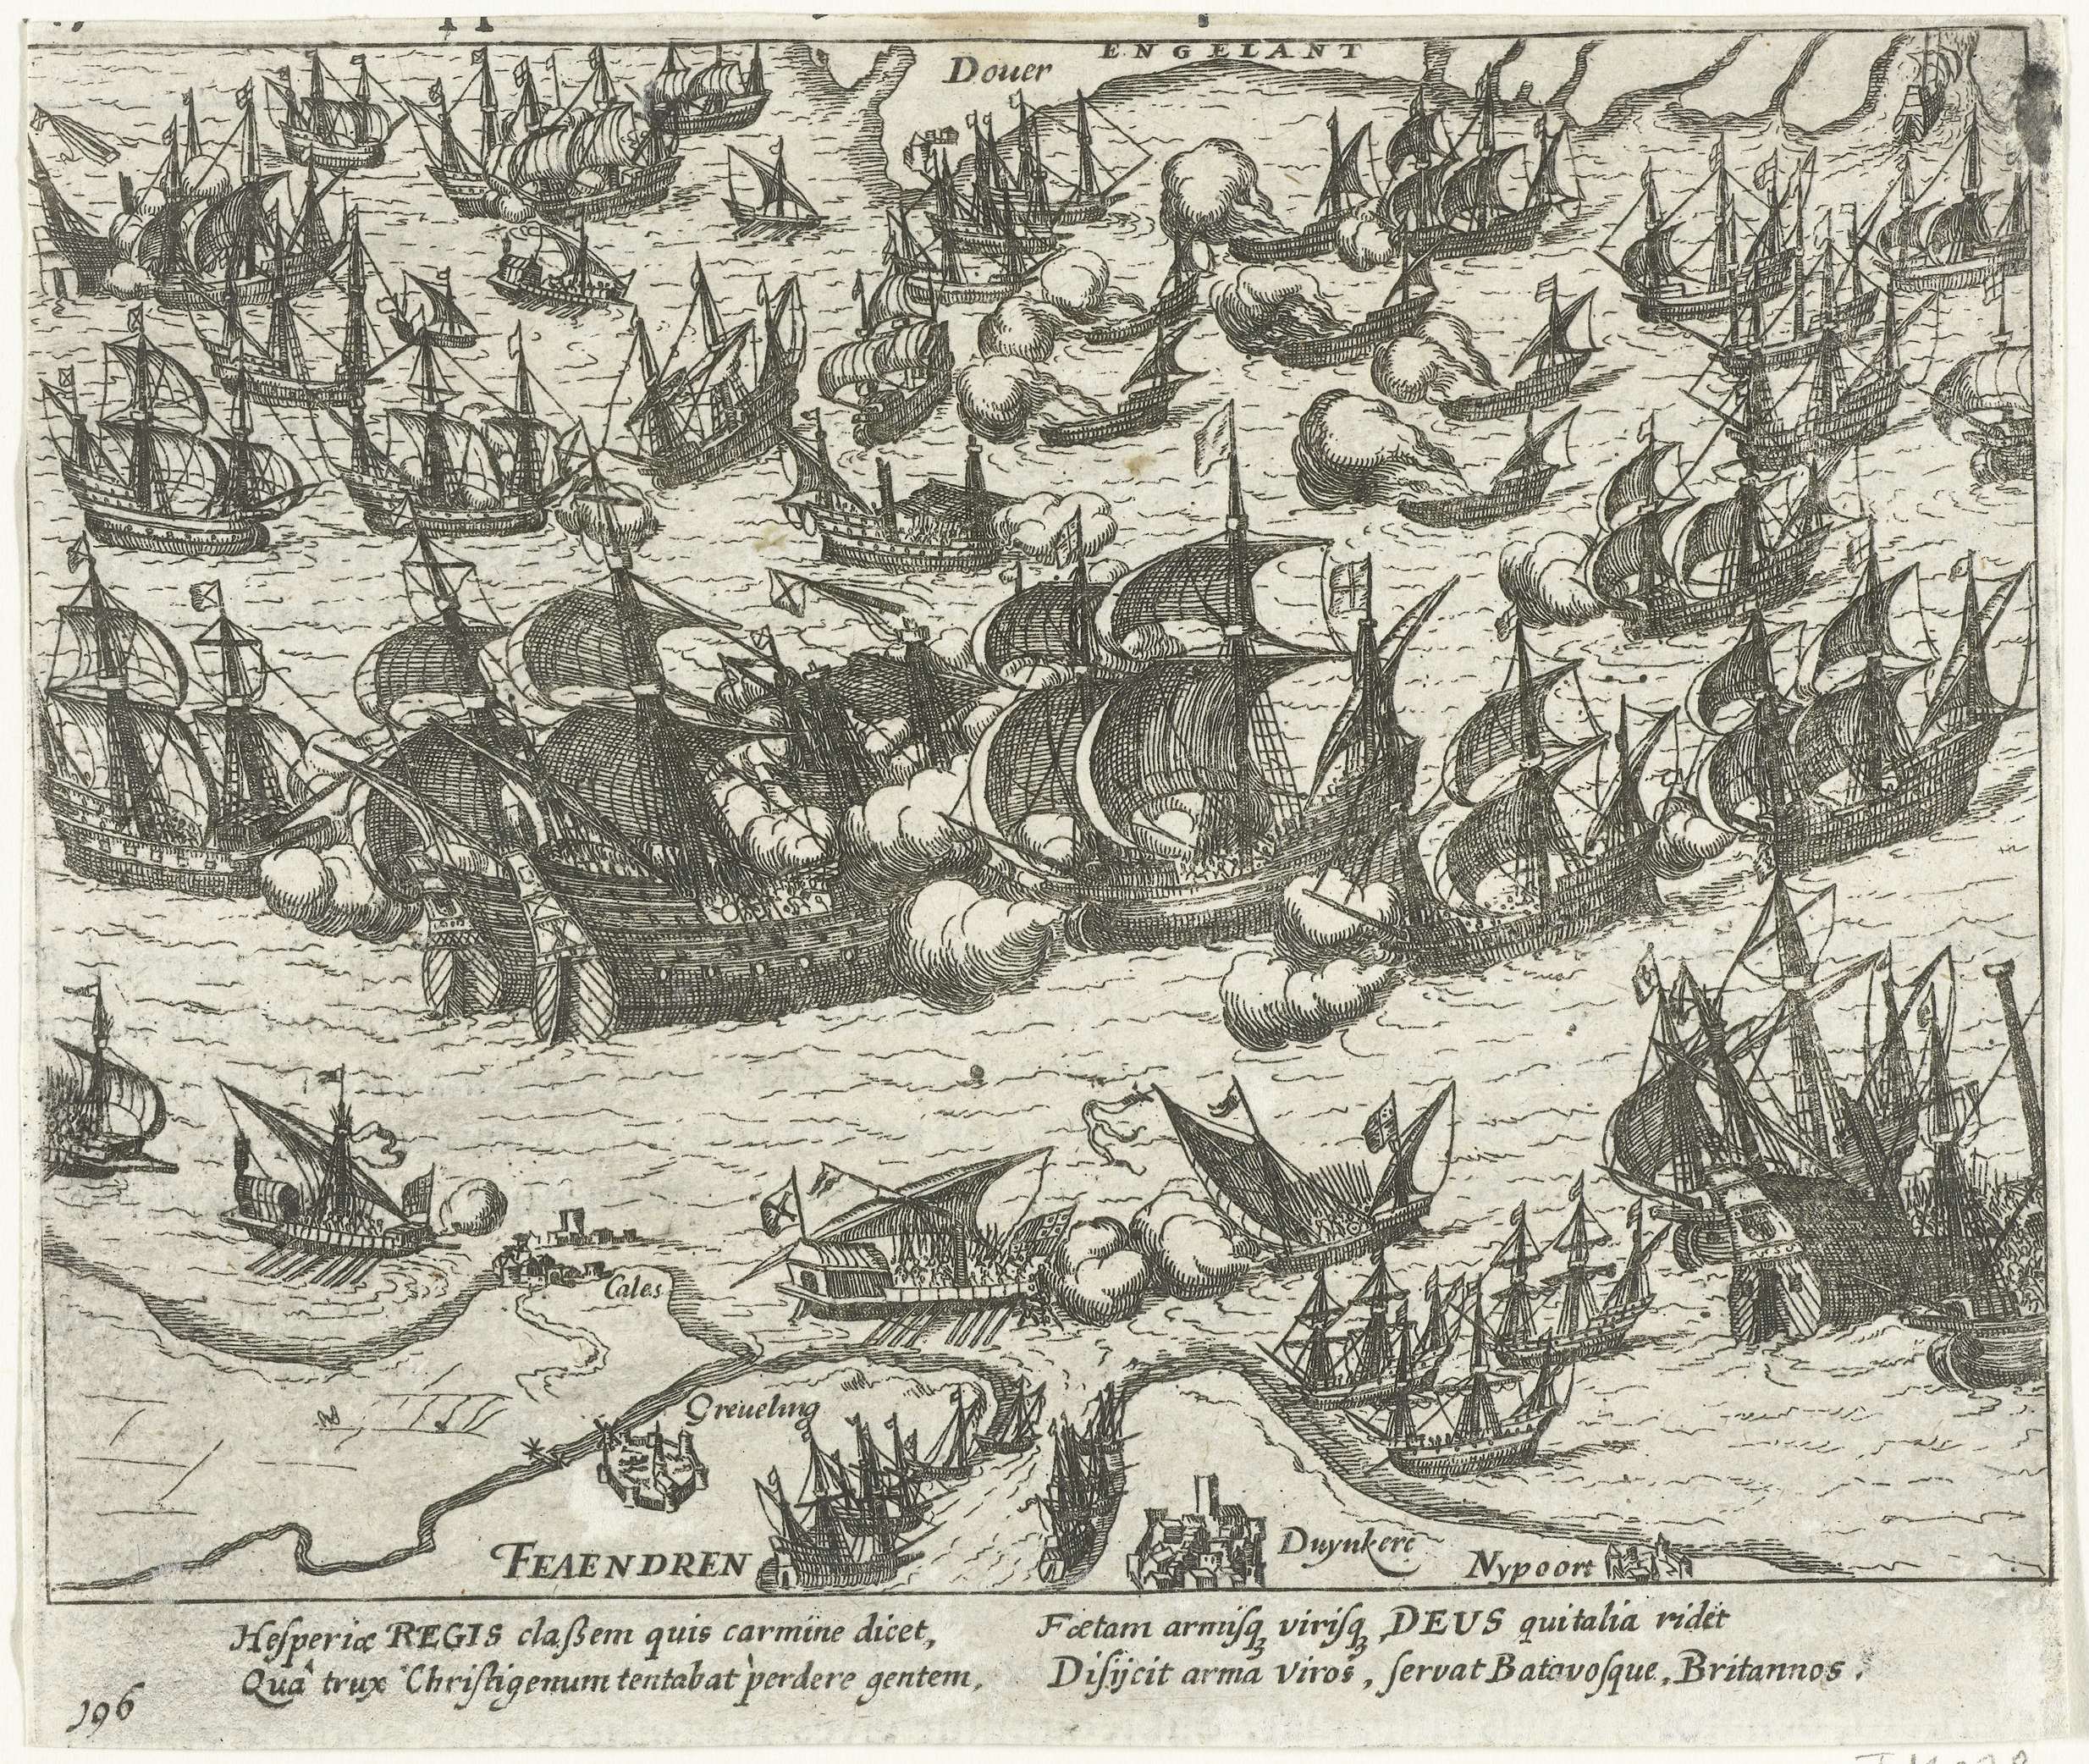 ENGELANT
Douer
Cales
Greueling
FLAENDREN
Duynkerc
Nypoort
Heſperiæ REGIS claßem quis carmine dicet,
Quâ trux Chriſtigenum tentabat perdere gentem,
Fœtam armiſqꝫ viriſqꝫ DEUS qui talia ridet
Diſijcit arma viros, ſervat Batavoſque, Britannos.
196